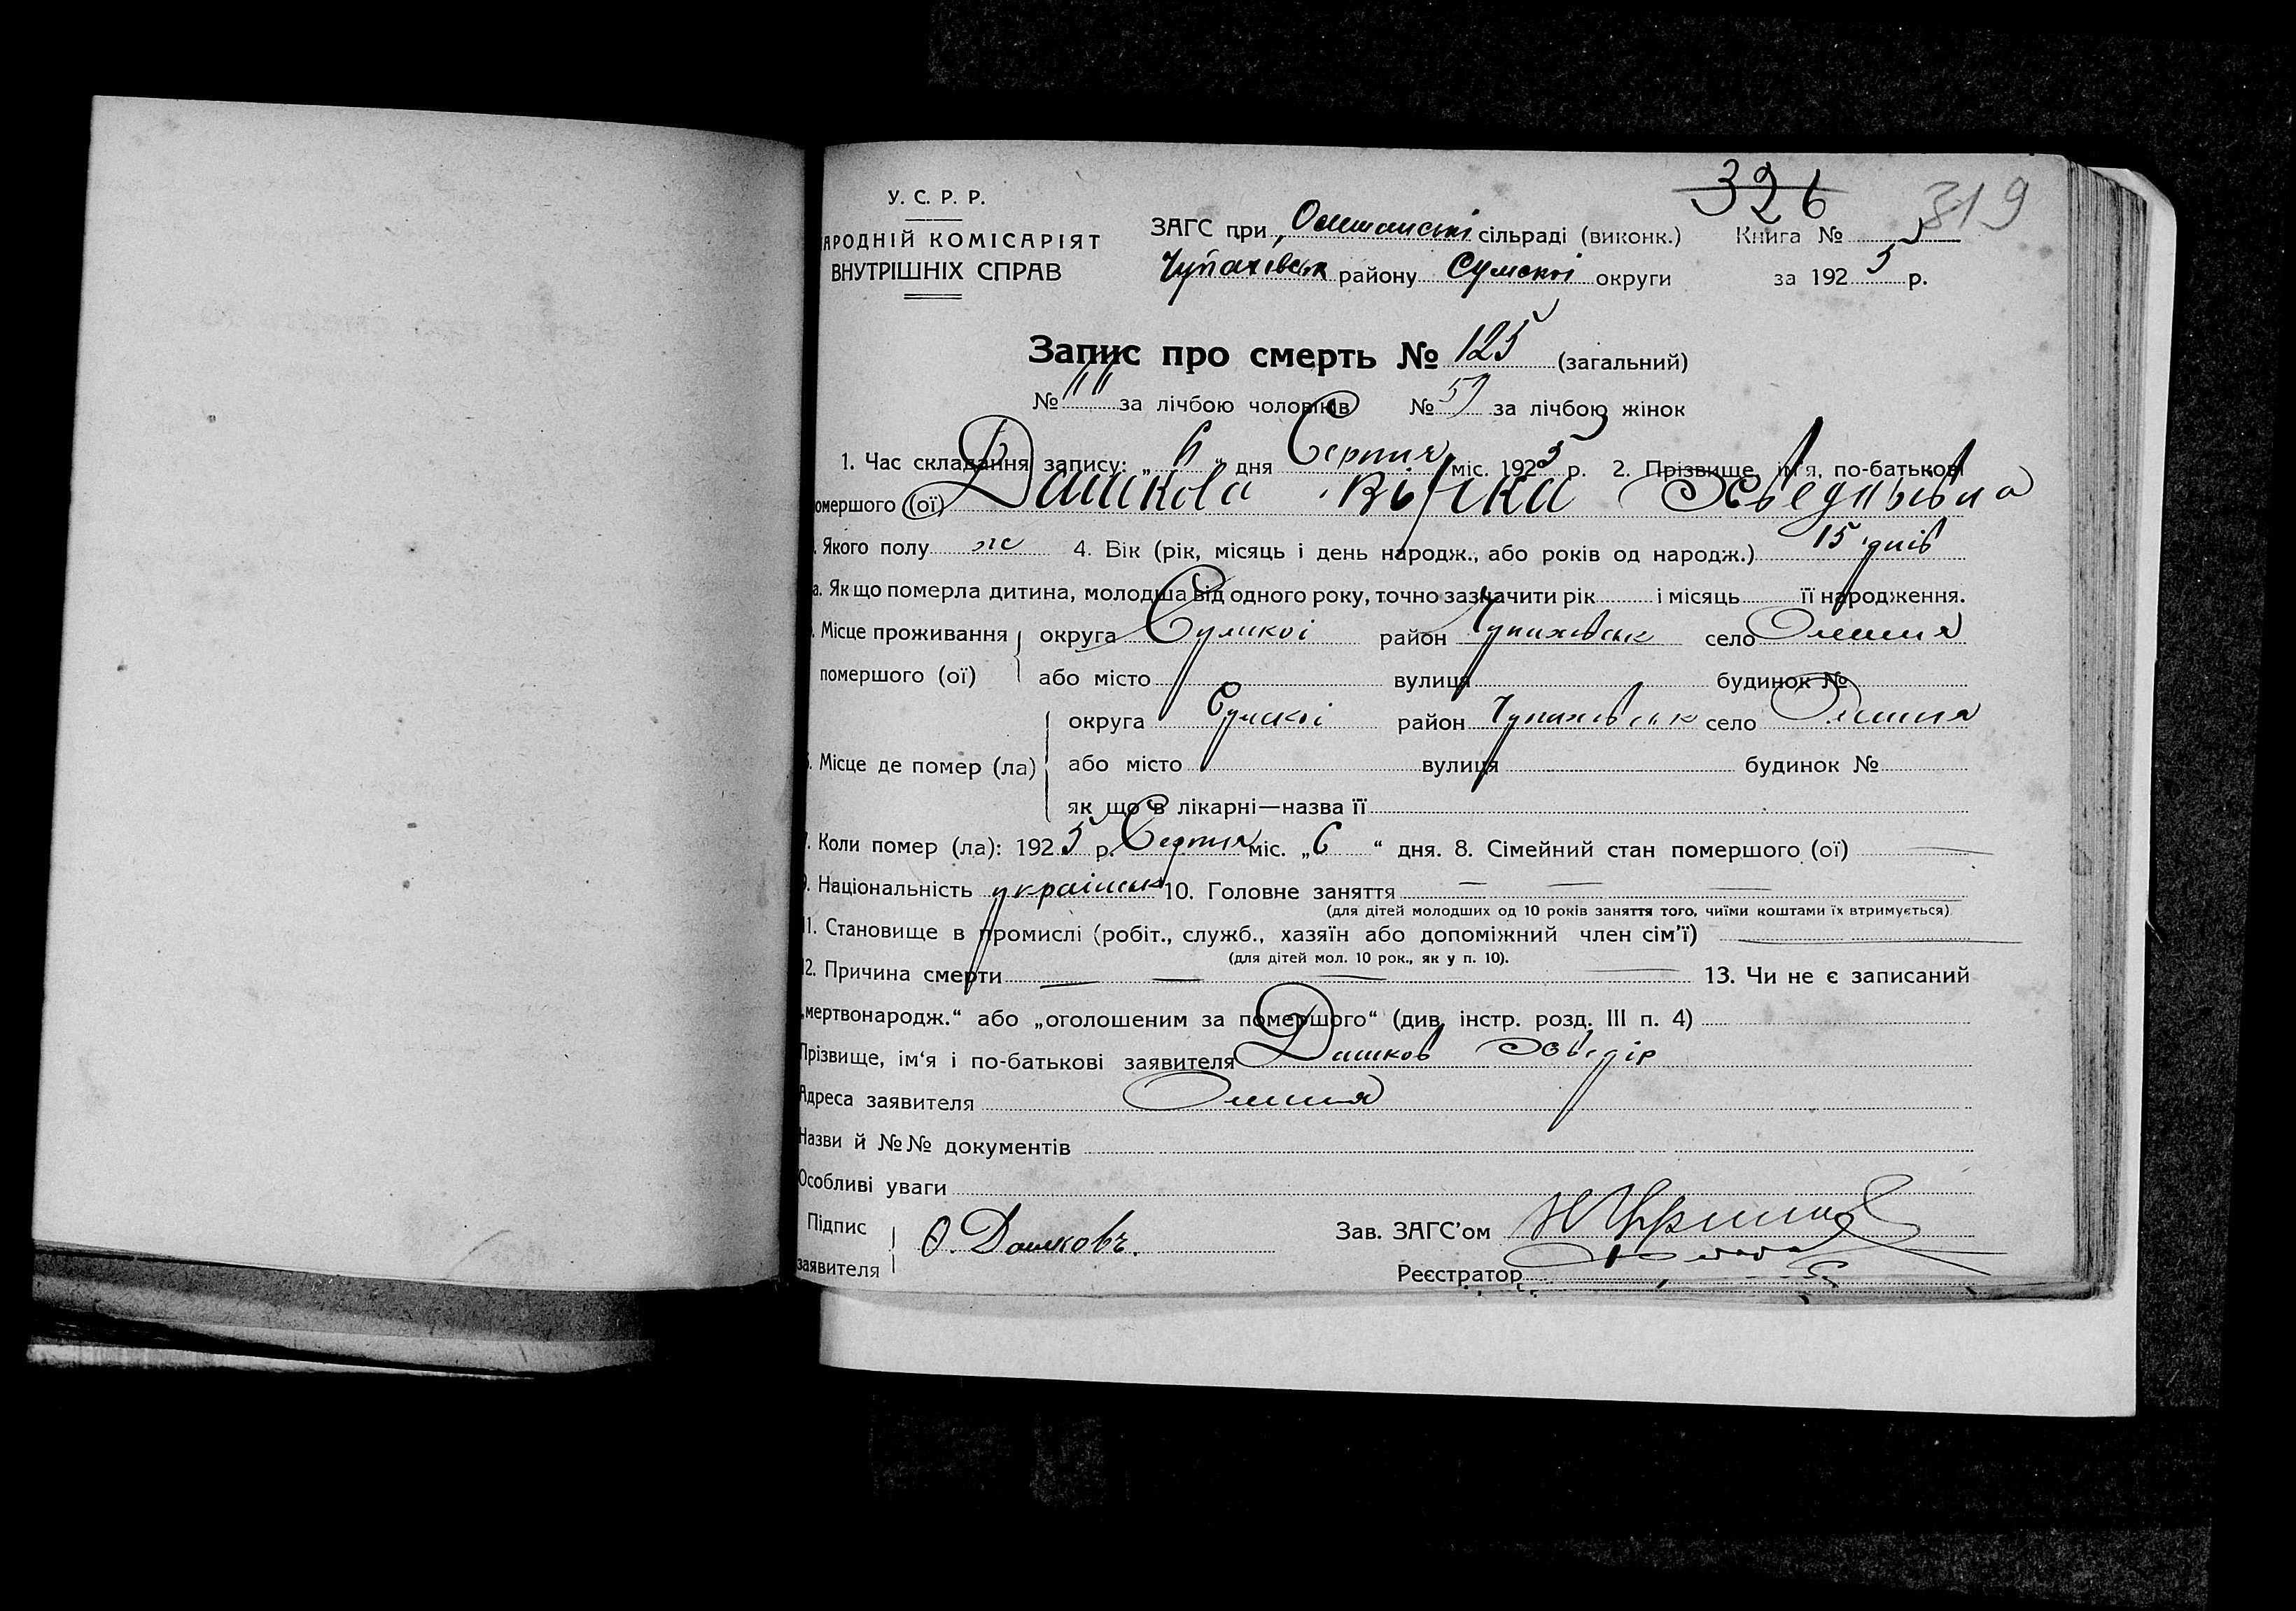 326 319
У. С. Р. Р.
АРОДНІЙ КОМІСАРІЯТ
ВНУТРІШНІХ СПРАВ
ЗАГС при сільраді (виконк.) Книга № 5
Чупахівськ району Сумскоі округи за 1925 р.
Запис про смерть № 125 (загальний)
№ " за лічбою чоловіків № за лічбою жінок
1. Час складання запису: „6“ дня Серпня міс. 1925 р. 2. Прізвище, ім'я, по-батькові
омершого (ої) Дашкова
. Якого полу ж 4. Вік (рік, місяць і день народж., або років од народж.) 15 днів
а. Як що померла дитина, молодша від одного року, точно зазначити рік і місяць її народження.
. Місце проживання округа Сумскоі район Чупахівськ село Олешня
помершого (ої) або місто вулиця будинок №
округа Сумскоі район Чупахівськ село Олешня
. Місце де помер (ла) або місто вулиця будинок №
як що в лікарні—назва її
7. Коли помер (ла): 1925 р. Серпня міс. „6“ дня. 8. Сімейний стан помершого (ої) —
9. Національність україньск 10. Головне заняття — — —
(для дітей молодших од 10 років заняття того, чиїми коштами їх втримується)
11. Становище в промислі (робіт., служб., хазяїн або допоміжний член сім'ї) —
(для дітей мол. 10 рок., як у п. 10).
12. Причина смерти — — — — 13. Чи не є записаний
„мертвонародж.“ або „оголошеним за помершого“ (див. інстр. розд. III п. 4)
Прізвище, ім‘я і по-батькові заявителя Дашков
Адреса заявителя Олешня
Назви й №№ документів
Особливі уваги
Підпис
заявителя Ѳ. Дашковъ.
Зав. ЗАГС'ом
Реєстратор